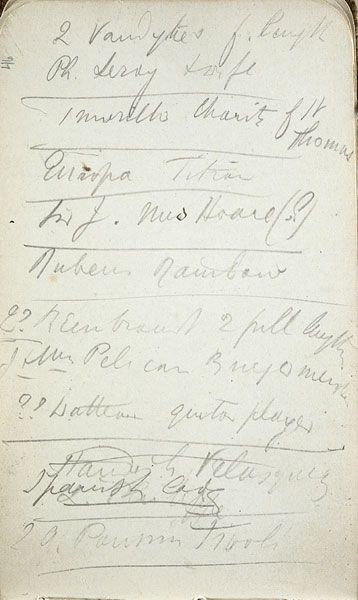 2 Vandykes f. lengt
Ph. Leroy & wife
1 murillo Charity of St
Thomas
Europa Titian
Sir J. Mrs Hoare (?)
Rubens Rainbow
2? Rembrandt 2 full lengths
& Mrs Pelican
?? Watteau guitar player
Velasquez
Spanish Lady
2 G. Poussin Tivoli